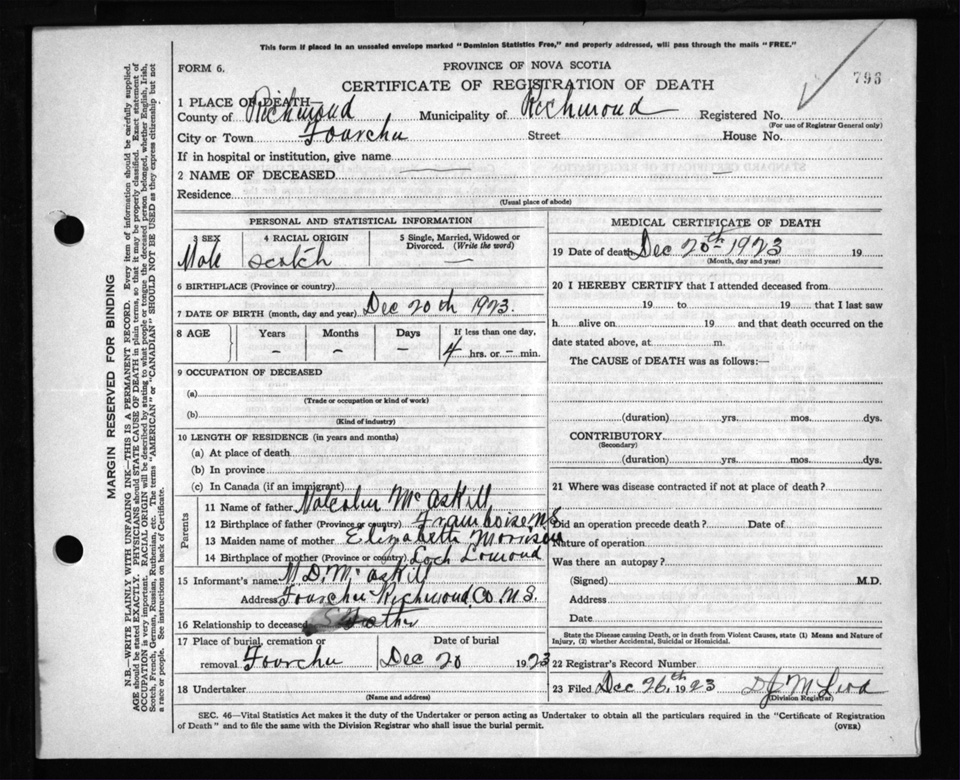 This form if placed in an unsealed envelope marked "Dominion Statistics Free," and properly addressed, will pass through the mails "FREE."
FORM 6.
PROVINCE OF NOVA SCOTIA
CERTIFICATE OF REGISTRATION OF DEATH
796
1 PLACE OF DEATH—
County of Richmond Municipality of Richmond Registered No.
(For use of Registrar General only)
City or Town Fourchu Street House No.
If in hospital or institution, give name
2 NAME OF DECEASED — —
Residence
(Usual place of abode)
PERSONAL AND STATISTICAL INFORMATION
3 SEX 4 RACIAL ORIGIN 5 Single, Married, Widowed or Divorced. (Write the word)
Male Scotch —
6 BIRTHPLACE (Province or country)
7 DATE OF BIRTH (month, day and year) Dec 20th 1923.
8 AGE Years Months Days If less than one day,
– – – 4 hrs. or – min.
9 OCCUPATION OF DECEASED
(a)
(Trade or occupation or kind of work)
(b)
(Kind of industry)
10 LENGTH OF RESIDENCE (in years and months)
(a) At place of death
(b) In province
(c) In Canada (if an immigrant)
Parents
11 Name of father Malcolm McAskill
12 Birthplace of father (Province or country) Framboise N.S.
13 Maiden name of mother Elizabeth Morrison
14 Birthplace of mother (Province or country) Loch Lomond
15 Informant's name M.D. McAskill
Address Fourchu Richmond Co. N.S.
16 Relationship to deceased Father
17 Place of burial, cremation Date of burial
removal Fourchu Dec 20 1923
18 Undertaker
(Name and address)
MEDICAL CERTIFICATE OF DEATH
19 Date of death Dec 20th 1923 19
(Month, day and year)
20 I HEREBY CERTIFY that I attended deceased from
19 to 19 that I last saw
h alive on 19 and that death occurred on the
date stated above, at m.
The CAUSE of DEATH was as follows:—
(duration) yrs. mos. dys.
CONTRIBUTORY
(Secondary)
(duration) yrs. mos. dys.
21 Where was disease contracted if not at place of death?
Did an operation precede death? Date of
Nature of operation
Was there an autopsy?
(Signed) M.D.
Address
Date
State the Disease causing Death, or in death from Violent Causes, state (1) Means and Nature of
Injury, (2) whether Accidental, Suicidal or Homicidal.
22 Registrar's Record Number
23 Filed Dec 26th 1923 D J McLeod
(Division Registrar)
SEC. 46—Vital Statistics Act makes it the duty of the Undertaker or person acting as Undertaker to obtain all the particulars required in the "Certificate of Registration
of Death" and to file the same with the Division Registrar who shall issue the burial permit.
(OVER)
MARGIN RESERVED FOR BINDING
N.B.—WRITE PLAINLY WITH UNFADING INK—THIS IS A PERMANENT RECORD. Every item of information should be carefully supplied.
AGE should be stated EXACTLY. PHYSICIANS should STATE CAUSE OF DEATH in plain terms, so that it may be properly classified. Exact statement of
OCCUPATION is very important. RACIAL ORIGIN will be described by stating to what people or tongue the deceased person belonged, whether English, Irish,
Scotch, French, German, Russian, Ruthenian, etc. The terms "AMERICAN" or "CANADIAN" SHOULD NOT BE USED as they express citizenship but not
a race or people. See instructions on back of Certificate.